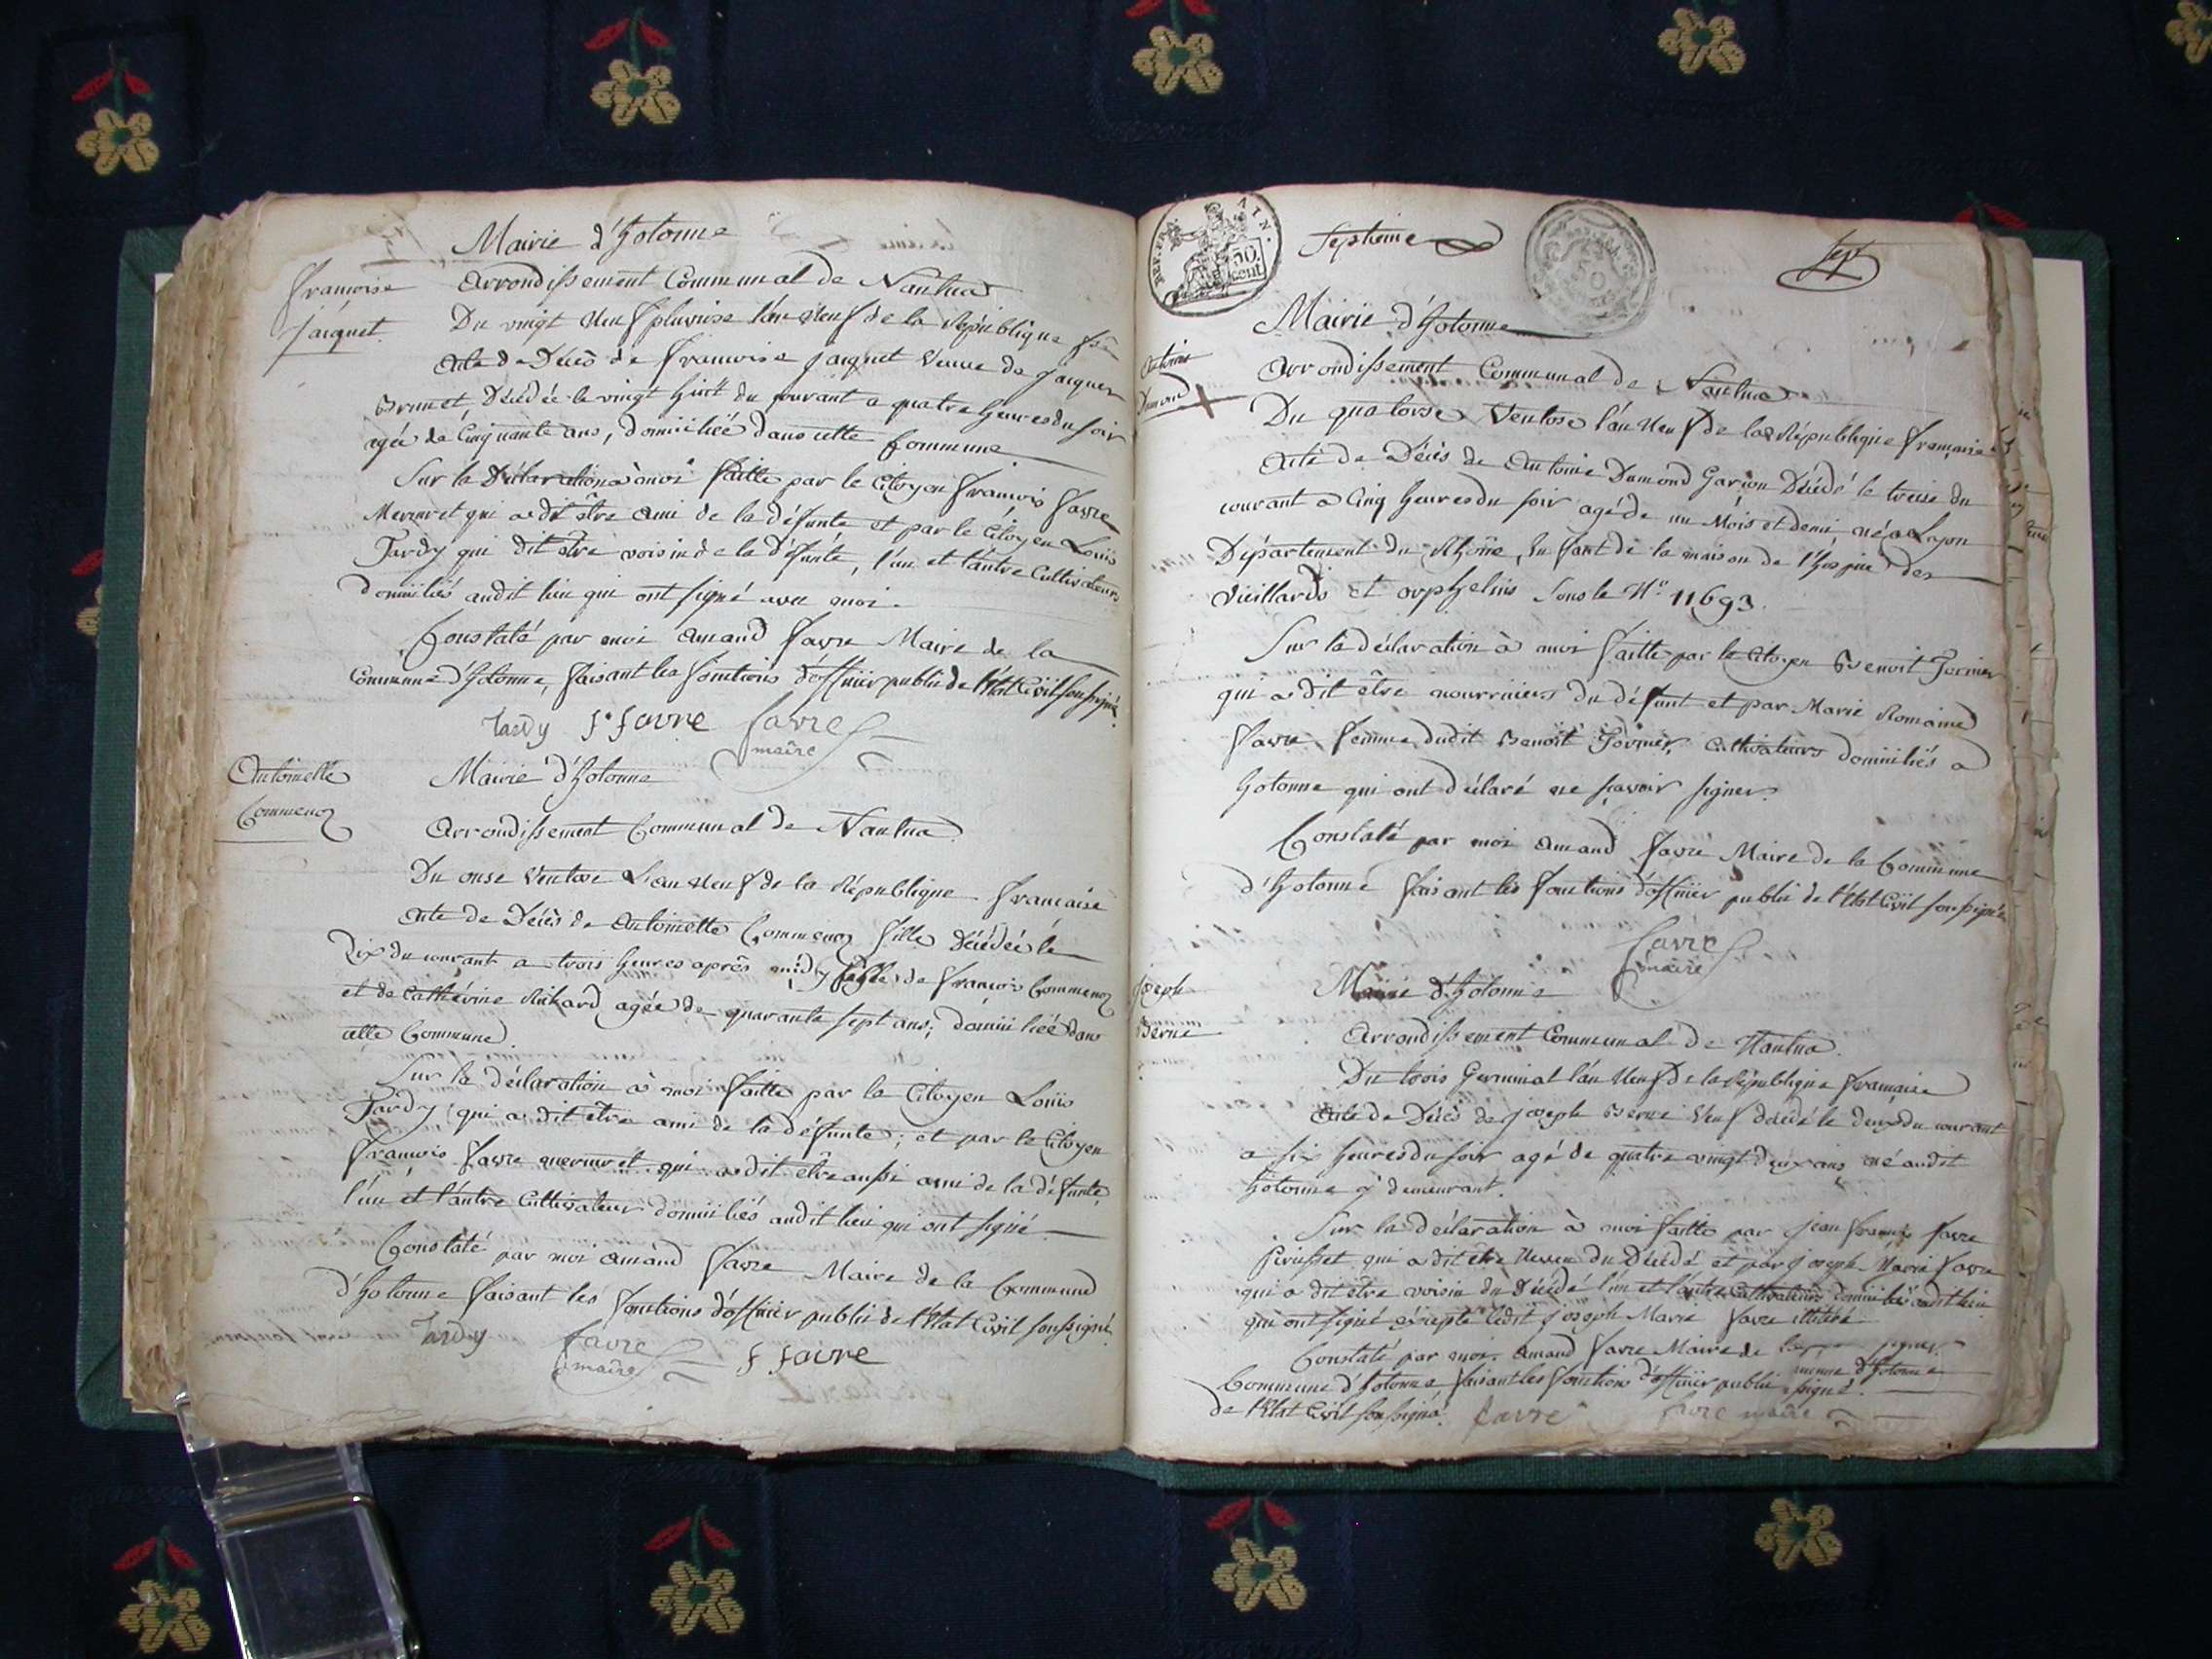 Mairie d'hotonne
Françoise
Jaiquet.
Arrondissement Communal de Nantua
Du vingt neuf pluviose l'an neuf de la République fse
Acte de Décès de Françoise Jaiquet veuve de Jacques
Brunet, Décédée le vingt huit du courant a quatre heures du soir
agée de Cinquante ans, domiciliée dans cette Commune
Sur la Déclaration à moi faitte par le Citoyen François Favre
Mermet qui a dit être ami de la défunte et par le Citoyen Louis
Tardy qui dit être voisin de la défunte, l'un et l'autre Cultivateurs
domiciliés audit lieu qui ont signé avec moi.
Constaté par moi Amand Favre Maire de la
Commune d'hotonne, faisant les fonctions d'officier public de l'état Civil soussigné
Tardy f. favre favre
maire
Antoinette
Commenoz
Mairie d'hotonne
Arrondissement Communal de Nantua
Du onse Ventose L'an neuf de la République francaise
Acte de Décès de Antoinette Commenoz fille Décédée le
Dix du courant a trois heures après midy fille de François Commenoz
et de Cathérine Richard agée de quarante sept ans, domiciliée dans
cette Commune.
Sur la déclaration à moi faitte par le Citoyen Louis
Tardy qui a dit être ami de la défunte; et par le Citoyen
François Favre mermet qui a dit être aussi ami de la défunte
l'un et l'autre Cultivateur domiciliés audit lieu qui ont signé
Constaté par moi Amand Favre Maire de la Commune
d'hotonne faisant les fonctions d'officier public de l'état Civil soussigné
Tardy favre f favre
maire
AIN.
50.
cent
Septieme
Sept
Mairie d'hotonne
Antoine
Dumond
Arrondissement Communal de Nantua
Du quatorse Ventose l'an neuf de la République française
Acte de Décès de Antoine Dumond Garçon Décédé le treise du
courant a Cinq heures du soir agé de un Mois et demi, né a Lyon
Département du Rhône, Enfant de la maison de l'hospice des
vieillards et orphelins Sous le No. 11693.
Sur la déclaration à moi faitte par le Citoyen Benoit
qui a dit être nourriciers du défunt et par Marie Romaine
Favre femme dudit Benoît Cultivateurs domiciliés a
hotonne qui ont déclaré ne sçavoir signer.
Constaté par moi Amand Favre Maire de la Commune
d'hotonne faisant les fonctions d'officier public de l'état Civil soussigné
favre
maire
Joseph
Berne
Mairie d'hotonne
Arrondissement Communal de Nantua.
Du trois Germinal l'an neuf de la République française
Acte de Décès de joseph Berne Veuf décédé le deux du courant
a six heures du soir agé de quatre vingt deux ans né audit
hotonne y demeurant.
Sur la déclaration à moi faitte par jean françois favre
qui a dit etre Neveu du Décédé et par Joseph Marie Favre
qui a dit être voisin du Décédé l'un et l'autre Cultivateurs domiciliés audit lieu
qui ont signé éxcepté ledit joseph Marie Favre illitéré
Constaté par moi Amand Favre Maire de la
Commune d'hotonne faisant les fonctions d'officier public
de l'état Civil soussigné. favre favre maire